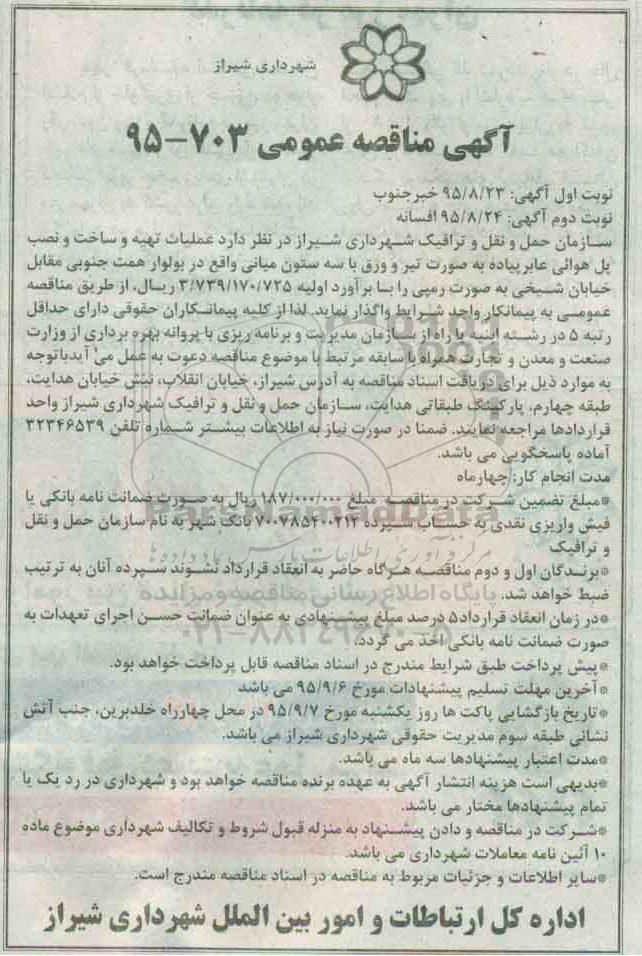 شهرداری شیراز
آگهی مناقصه عمومی ۷۰۳-۹۵
نوبت اول آگهی: ۹۵/۸/۲۳ خبرجنوب
نوبت دوم آگهی: ۹۵/۸/۲۴ افسانه
سازمان حمل و نقل و ترافیک شهرداری شیراز در نظر دارد عملیات تهیه و ساخت و نصب
پل هوائی عابرپیاده به صورت تیر و ورق با سه ستون میانی واقع در بولوار همت جنوبی مقابل
خیابان شیخی به صورت رمپی را با برآورد اولیه ۳/۷۳۹/۱۷۰/۷۲۵ ریال، از طریق مناقصه
عمومی به پیمانکار واجد شرایط واگذار نماید. لذا از کلیه پیمانکاران حقوقی دارای حداقل
رتبه ۵ در رشته ابنیه یا راه از سازمان مدیریت و برنامه ریزی یا پروانه بهره برداری از وزارت
صنعت و معدن و تجارت همراه با سابقه مرتبط با موضوع مناقصه دعوت به عمل می آید باتوجه
به موارد ذیل برای دریافت اسناد مناقصه به آدرس شیراز، خیابان انقلاب، نبش خیابان هدایت،
طبقه چهارم، پارکینگ طبقاتی هدایت، سازمان حمل و نقل و ترافیک شهرداری شیراز واحد
قراردادها مراجعه نمایند. ضمنا در صورت نیاز به اطلاعات بیشتر شماره تلفن ۳۲۳۴۶۵۳۹
آماده پاسخگویی می باشد.
مدت انجام کار: چهارماه
*مبلغ تضمین شرکت در مناقصه مبلغ ۱۸۷/۰۰۰/۰۰۰ ریال به صورت ضمانت نامه بانکی یا
فیش واریزی نقدی به حساب سپرده ۷۰۰۷۸۵۴۰۰۲۱۲ بانک شهر به نام سازمان حمل و نقل
و ترافیک
ParsNamadData
مرکز فرآوری اطلاعات پارس نماد داده ها
*برندگان اول و دوم مناقصه هرگاه حاضر به انعقاد قرارداد نشوند سپرده آنان به ترتیب
ضبط خواهد شد.
پایگاه اطلاع رسانی مناقصه و مزایده
*در زمان انعقاد قرارداد۵ درصد مبلغ پیشنهادی به عنوان ضمانت حسن اجرای تعهدات به
صورت ضمانت نامه بانکی اخذ می گردد.
*پیش پرداخت طبق شرایط مندرج در اسناد مناقصه قابل پرداخت خواهد بود.
*آخرین مهلت تسلیم پیشنهادات مورخ ۹۵/۹/۶ می باشد
*تاریخ بازگشایی پاکت ها روز یکشنبه مورخ ۹۵/۹/۷ در محل چهارراه خلدبرین، جنب آتش
نشانی طبقه سوم مدیریت حقوقی شهرداری شیراز می باشد.
*مدت اعتبار پیشنهادها سه ماه می باشد.
*بدیهی است هزینه انتشار آگهی به عهده برنده مناقصه خواهد بود و شهرداری در رد یک یا
تمام پیشنهادها مختار می باشد.
*شرکت در مناقصه و دادن پیشنهاد به منزله قبول شروط و تکالیف شهرداری موضوع ماده
۱۰ آئین نامه معاملات شهرداری می باشد.
*سایر اطلاعات و جزئیات مربوط به مناقصه در اسناد مناقصه مندرج است.
اداره کل ارتباطات و امور بین الملل شهرداری شیراز